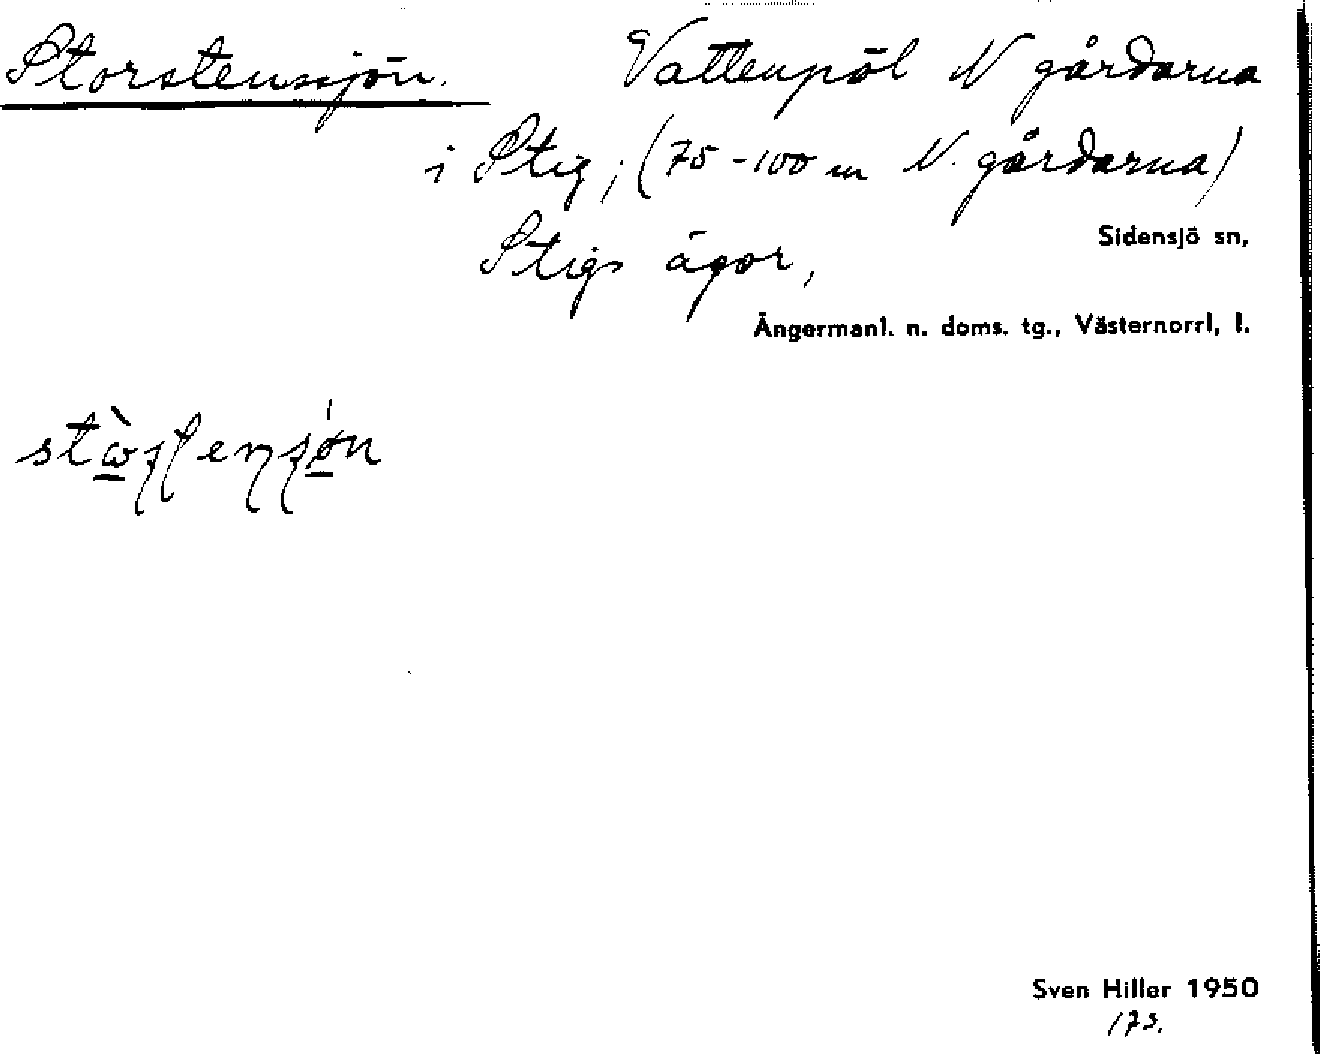 Storstenssjön. Vattenpöl N gårdarna
i Stig; (75-100 m N. gårdarna)
Sidensjö sn,
Stigs ägor,
Ångermanl. n. doms. tg., Västernorrl, l.
Sven Hiller 1950
173.